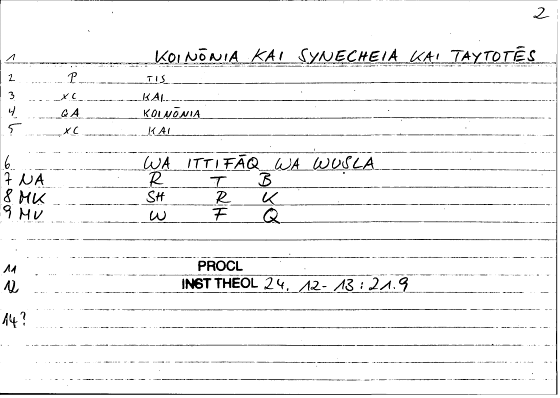 2
1 KOINŌNIA KAI SYNECHEIA KAI TAYTOTĒS
2 P TIS
3 XC KAI
4 QA KOINŌNIA
5 XC KAI
6 WA ITTIFĀQ WA WUṢLA
7 NA R T B
8 MK SH R K
9 MV W F Q
11 PROCL
12 INST THEOL 24. 12-13:21.9
14?